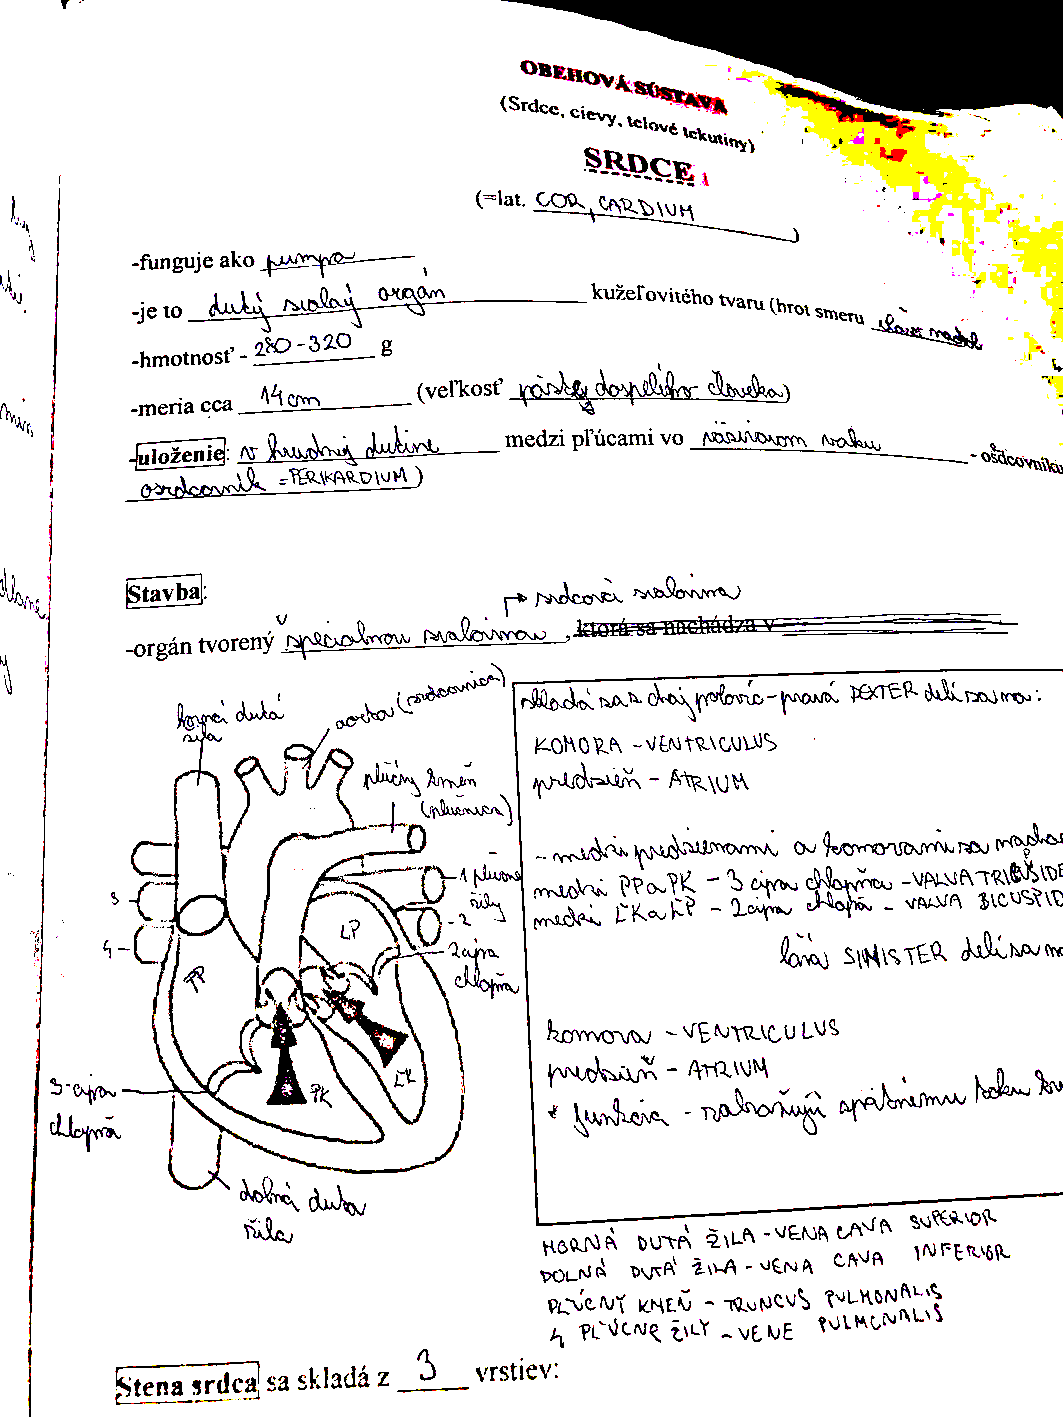 OBEHOVÁ SÚSTAVA
(Srdce, cievy, telové tekutiny)
SRDCE
(=lat. COR, CARDIUM)
-funguje ako pumpa
-je to dutý svalový orgán kužeľovitého tvaru (hrot smeru
-hmotnosť - 280-320 g
-meria cca 14 cm (veľkosť päste dospelého človeka)
-uloženie: v hrudnej dutine medzi pľúcami vo väzivovom vaku - osrdcovníku
osrdcovník = PERIKARDIUM)
Stavba:
srdcová svalovina
-orgán tvorený špeciálnou svalovinou, ktorá sa nachádza v
horná dutá
žila
aorta (srdcovnica)
pľúcny kmeň
(pľúcnica)
1 pľúcne
žily
2
3
4
LP
PP
2 cípa
chlopňa
ĽK
PK
3-cípa
chlopňa
dolná dutá
žila
skladá sa z dvoj polovíc - pravá DEXTER delí sa na:
KOMORA - VENTRICULUS
predsieň - ATRIUM
- medzi predsieňami a komorami sa
medzi PP a PK - 3 cípa chlopňa - VALVA
medzi ĽK a ĽP - 2 cípa chlopň - VALVA BICUSPID
ľavá SINISTER delí sa na
komora - VENTRICULUS
predsieň - ATRIUM
* funkcia - zabraňujú spätnému toku
HORNÁ DUTÁ ŽILA - VENA CAVA SUPERIOR
DOLNÁ DUTÁ ŽILA - VENA CAVA INFERIOR
PĽÚCNY KMEŇ - TRUNCUS PULMONALIS
4 PĽÚCNE ŽILY - VENE PULMONALIS
Stena srdca sa skladá z 3 vrstiev: